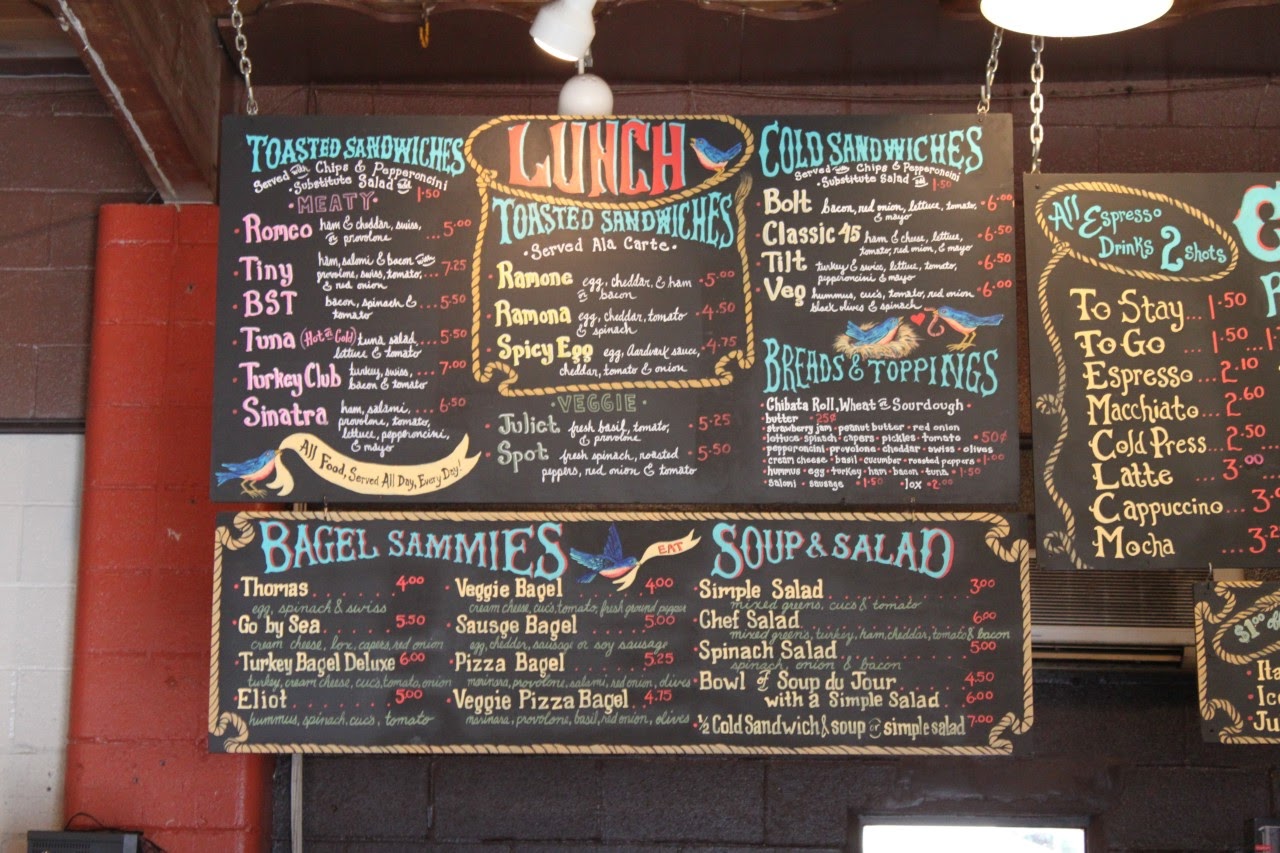 TOASTED SANDWICHES
Served with Chips & Pepperoncini
Substitute Salad add 1.50
MEATY
Romeo ham & cheddar, swiss, or provolone ... 5.00
Tiny ham, salami & bacon with provolone, swiss, tomato, & red onion ... 7.25
BST bacon, spinach & tomato ... 5.50
Tuna (Hot or Cold) tuna salad, lettuce & tomato ... 5.50
Turkey Club turkey, swiss, bacon & tomato ... 7.00
Sinatra ham, salami, provolone, tomato, lettuce, pepperoncini, & mayo ... 6.50
All Food, Served All Day, Every Day!
LUNCH
TOASTED SANDWICHES
Served Ala Carte
Ramone egg, cheddar, & ham or bacon 5.00
Ramona egg, cheddar, tomato & spinach 4.50
Spicy Egg egg, Aardvark sauce, cheddar, tomato & onion 4.75
VEGGIE
Juliet fresh basil, tomato, & provolone 5.25
Spot fresh spinach, roasted peppers, red onion & tomato 5.50
COLD SANDWICHES
Served with Chips & Pepperoncini
Substitute Salad add 1.50
Bolt bacon, red onion, lettuce, tomato, & mayo 6.00
Classic 45 ham & cheese, lettuce, tomato, red onion, & mayo 6.50
Tilt turkey & swiss, lettuce, tomato, pepperoncini & mayo 6.50
Veg hummus, cuc's, tomato, red onion black olives & spinach 6.00
BREADS & TOPPINGS
Chibata Roll, Wheat or Sourdough
butter · 25¢
strawberry jam · peanut butter · red onion
lettuce · spinach · capers · pickles · tomato · 50¢
pepperoncini · provolone · cheddar · swiss · olives
cream cheese · basil · cucumber · roasted peppers · 1.00
hummus · egg · turkey · ham · bacon · tuna · 1.50
salami · sausage · 1.50 · lox · 2.00
BAGEL SAMMIES
EAT
Thomas 4.00
egg, spinach & swiss
Go by Sea 5.50
cream cheese, lox, capers, red onion
Turkey Bagel Deluxe 6.00
turkey, cream cheese, cuc's, tomato, onion
Eliot 5.00
hummus, spinach, cuc's, tomato
Veggie Bagel 4.00
cream cheese, cuc's, tomato, fresh ground pepper
Sausge Bagel 5.00
egg, cheddar, sausage or soy sausage
Pizza Bagel 5.25
marinara, provolone, salami, red onion, olives
Veggie Pizza Bagel 4.75
marinara, provolone, basil, red onion, olives
SOUP & SALAD
Simple Salad 3.00
mixed greens, cucs & tomato
Chef Salad 6.00
mixed greens, turkey, ham, cheddar, tomato & bacon
Spinach Salad 5.00
spinach, onion & bacon
Bowl of Soup du Jour 4.50
with a Simple Salad 6.00
½ Cold Sandwich & soup or simple salad 7.00
All Espresso
Drinks 2 Shots
To Stay... 1.50
To Go ... 1.50
Espresso ... 2.10
Macchiato ... 2.60
Cold Press... 2.50
Latte ... 3.00
Cappuccino ... 3.
Mocha ... 3.2
$1.00
Ita
Ic
Ju